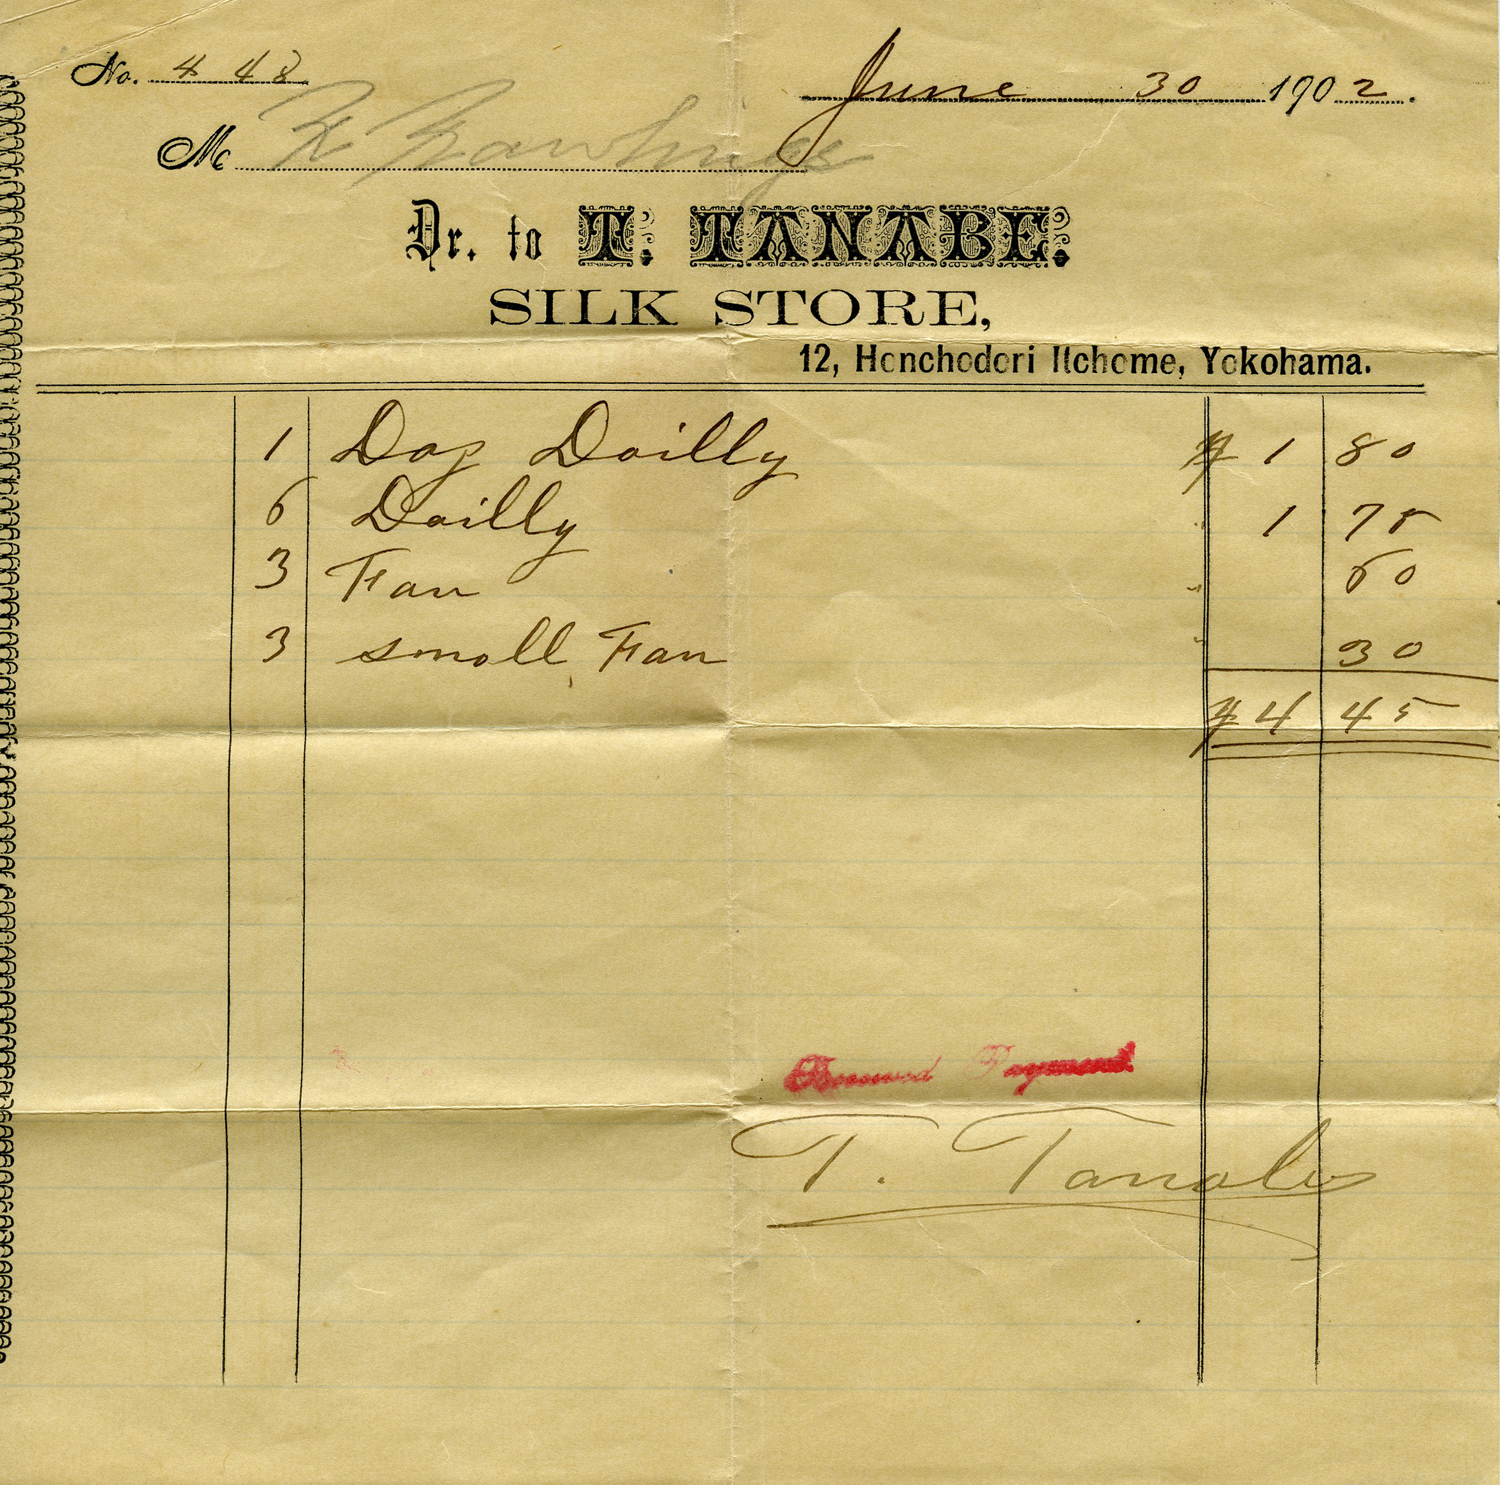 No. 448
June 30 1902.
M
Dr. to T. TANABE.
SILK STORE,
12, Honchodori Itchome, Yokohama.
1 Doz Doilly $ 1 80
6 Doilly " 1 75
3 Fan " 60
3 small Fan " 30
$ 4 45
Received Payment
T. Tanabe